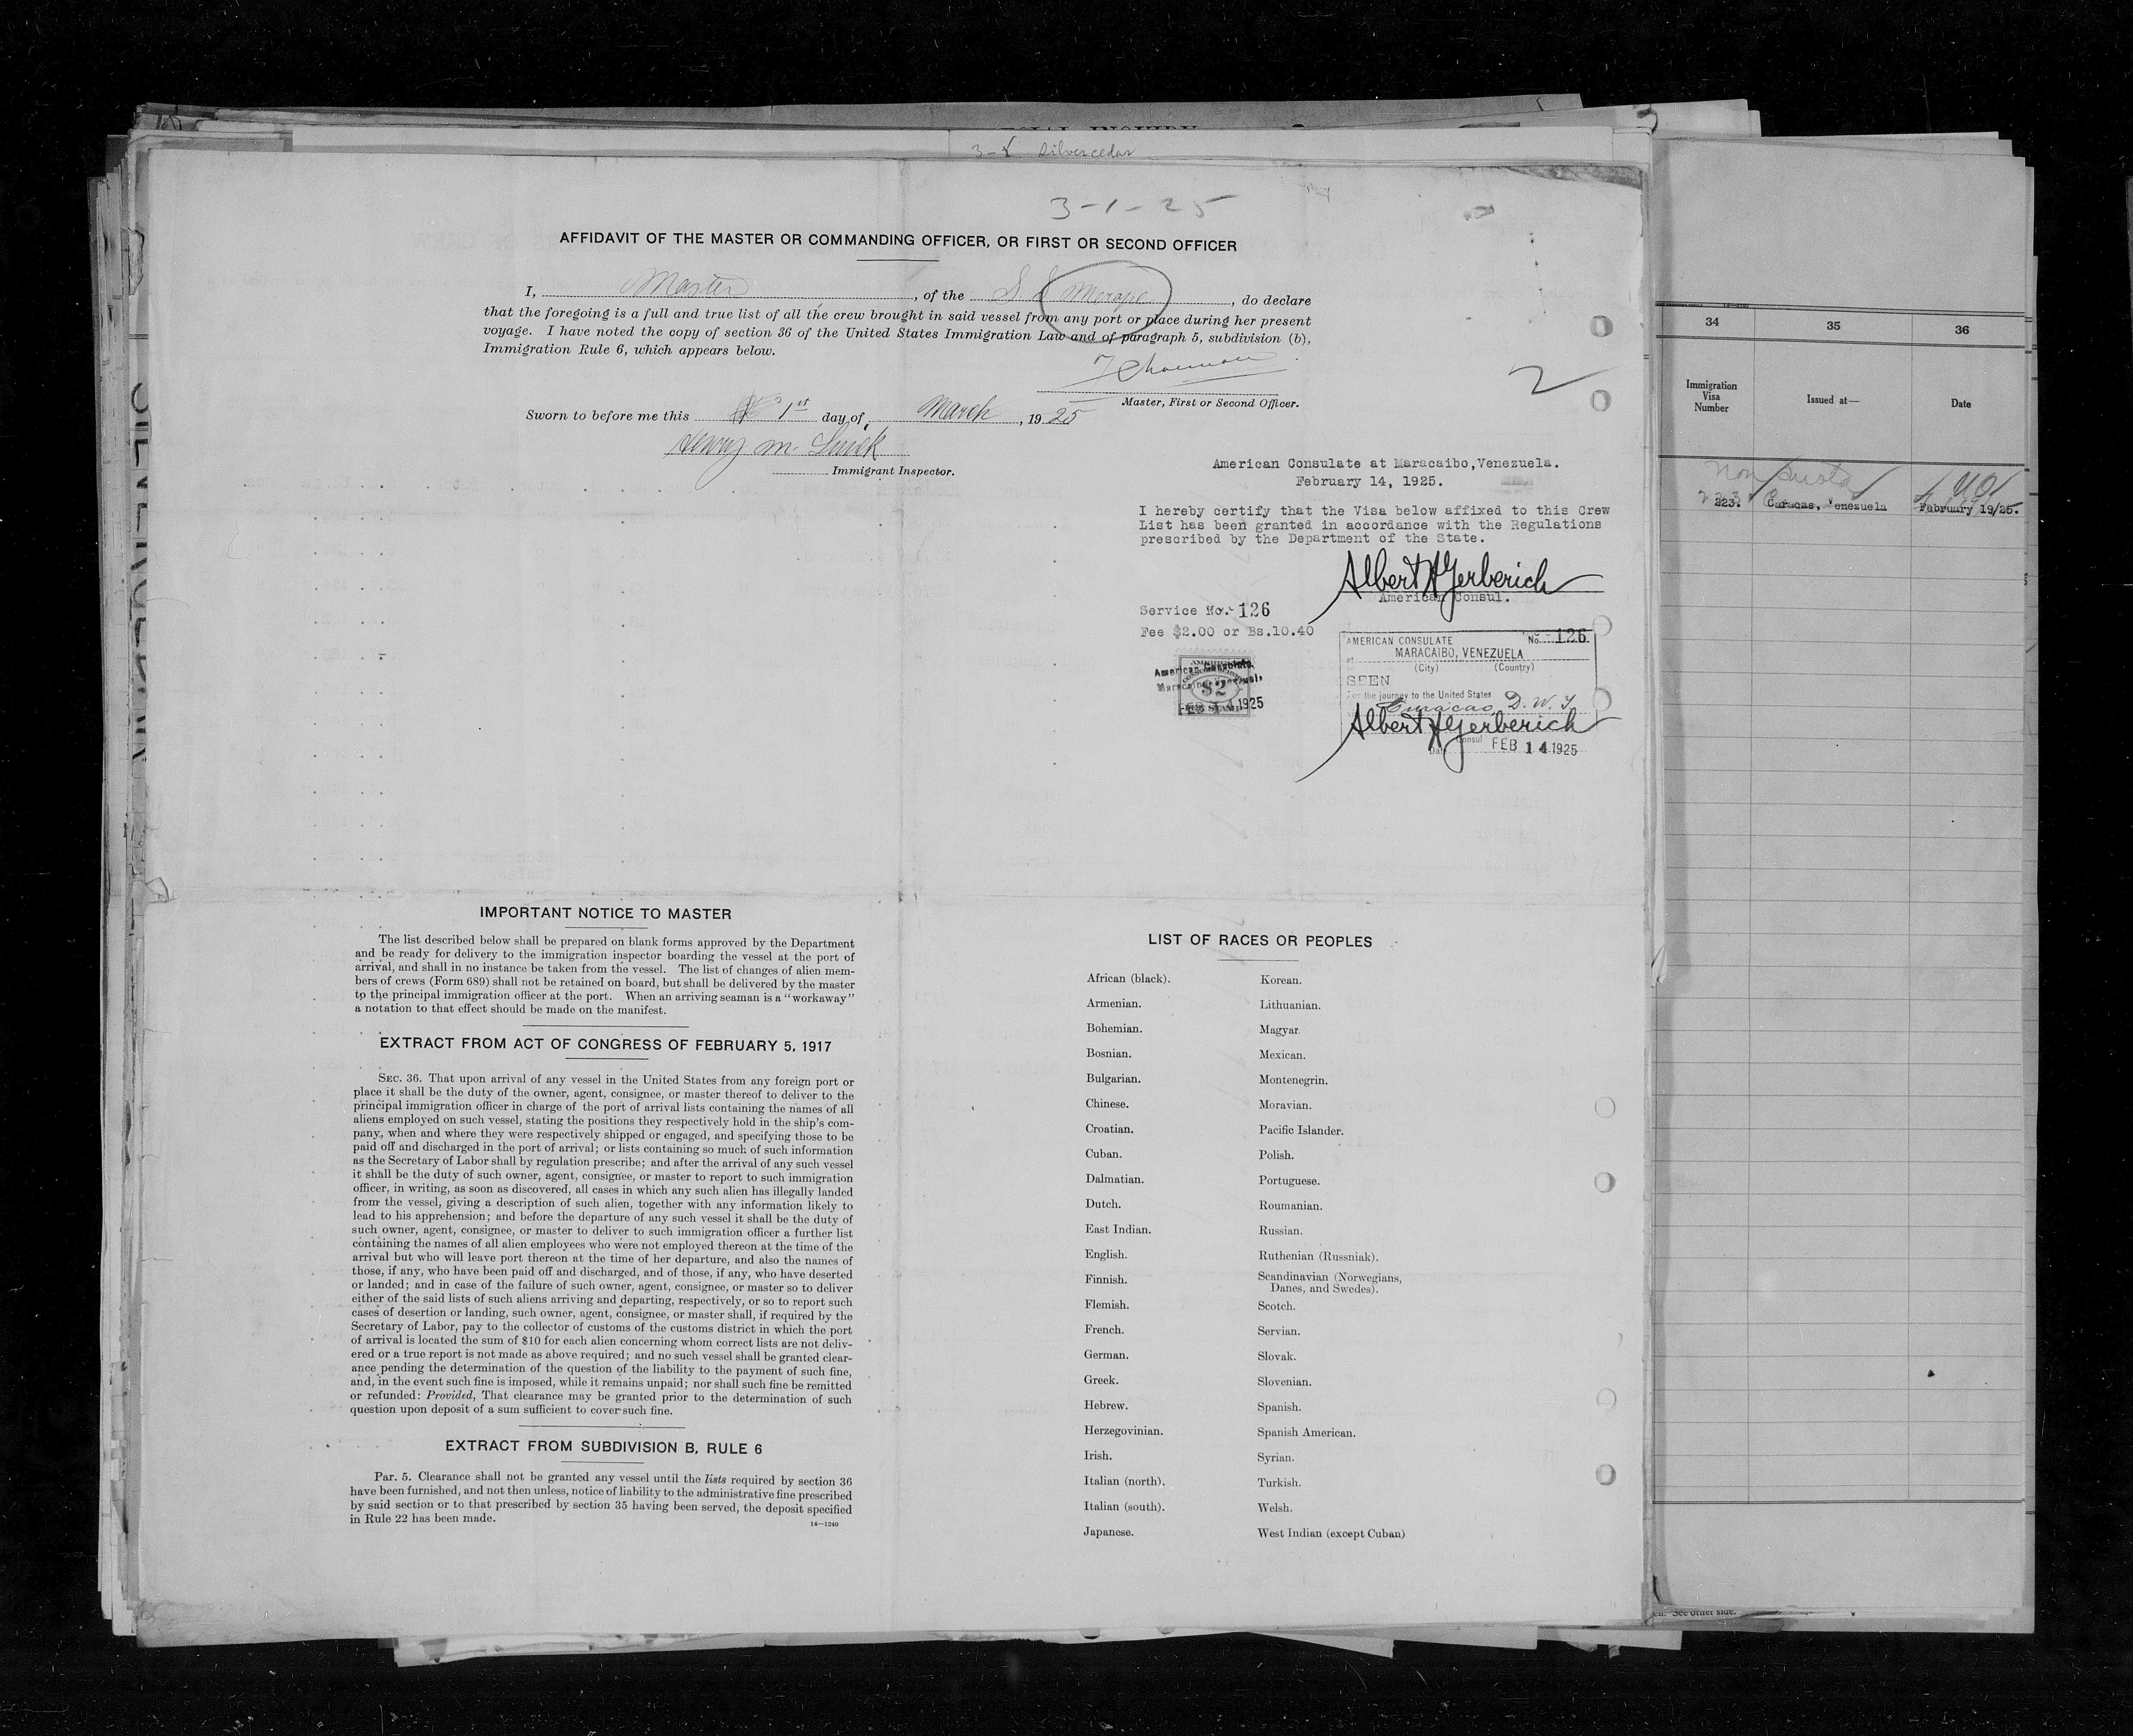 3-1-25
AFFIDAVIT OF THE MASTER OR COMMANDING OFFICER, OR FIRST OR SECOND OFFICER
I, Master, of the S S Merope, do declare
that the foregoing is a full and true list of all the crew brought in said vessel from any port or place during her present
voyage. I have noted the copy of section 36 of the United States Immigration Law and of paragraph 5, subdivision (b),
Immigration Rule 6, which appears below.
Master, First or Second Officer.
2
Sworn to before me this 1st day of March, 1925
Henry M.
Immigrant Inspector.
American Consulate at Maracaibo, Venezuela.
February 14, 1925.
I hereby certify that the Visa below affixed to this Crew
List has been granted in accordance with the Regulations
prescribed by the Department of the State.
Albert H Gerberich
American Consul.
Service No. 126
Fee $2.00 or Bs.10.40
American Consulate,
Maracaibo, Venezuela,
$2
FEB 14 1925
AMERICAN CONSULATE No. 126
at MARACAIBO, VENEZUELA
(City) (Country)
SEEN
For the journey to the United States
Curacao, D. W. I.
Albert H Gerberich
Consul
Date FEB 14 1925
IMPORTANT NOTICE TO MASTER
The list described below shall be prepared on blank forms approved by the Department
and be ready for delivery to the immigration inspector boarding the vessel at the port of
arrival, and shall in no instance be taken from the vessel. The list of changes of alien mem-
bers of crews (Form 689) shall not be retained on board, but shall be delivered by the master
to the principal immigration officer at the port. When an arriving seaman is a "workaway"
a notation to that effect should be made on the manifest.
EXTRACT FROM ACT OF CONGRESS OF FEBRUARY 5, 1917
SEC. 36. That upon arrival of any vessel in the United States from any foreign port or
place it shall be the duty of the owner, agent, consignee, or master thereof to deliver to the
principal immigration officer in charge of the port of arrival lists containing the names of all
aliens employed on such vessel, stating the positions they respectively hold in the ship's com-
pany, when and where they were respectively shipped or engaged, and specifying those to be
paid off and discharged in the port of arrival; or lists containing so much of such information
as the Secretary of Labor shall by regulation prescribe; and after the arrival of any such vessel
it shall be the duty of such owner, agent, consignee, or master to report to such immigration
officer, in writing, as soon as discovered, all cases in which any such alien has illegally landed
from the vessel, giving a description of such alien, together with any information likely to
lead to his apprehension; and before the departure of any such vessel it shall be the duty of
such owner, agent, consignee, or master to deliver to such immigration officer a further list
containing the names of all alien employees who were not employed thereon at the time of the
arrival but who will leave port thereon at the time of her departure, and also the names of
those, if any, who have been paid off and discharged, and of those, if any, who have deserted
or landed; and in case of the failure of such owner, agent, consignee, or master so to deliver
either of the said lists of such aliens arriving and departing, respectively, or so to report such
cases of desertion or landing, such owner, agent, consignee, or master shall, if required by the
Secretary of Labor, pay to the collector of customs of the customs district in which the port
of arrival is located the sum of $10 for each alien concerning whom correct lists are not deliv-
ered or a true report is not made as above required; and no such vessel shall be granted clear-
ance pending the determination of the question of the liability to the payment of such fine,
and, in the event such fine is imposed, while it remains unpaid; nor shall such fine be remitted
or refunded: Provided, That clearance may be granted prior to the determination of such
question upon deposit of a sum sufficient to cover such fine.
EXTRACT FROM SUBDIVISION B, RULE 6
Par. 5. Clearance shall not be granted any vessel until the lists required by section 36
have been furnished, and not then unless, notice of liability to the administrative fine prescribed
by said section or to that prescribed by section 35 having been served, the deposit specified
in Rule 22 has been made.
14—1240
LIST OF RACES OR PEOPLES
African (black).
Armenian.
Bohemian.
Bosnian.
Bulgarian.
Chinese.
Croatian.
Cuban.
Dalmatian.
Dutch.
East Indian.
English.
Finnish.
Flemish.
French.
German.
Greek.
Hebrew.
Herzegovinian.
Irish.
Italian (north).
Italian (south).
Japanese.
Korean.
Lithuanian.
Magyar.
Mexican.
Montenegrin.
Moravian.
Pacific Islander.
Polish.
Portuguese.
Roumanian.
Russian.
Ruthenian (Russniak).
Scandinavian (Norwegians,
Danes, and Swedes).
Scotch.
Servian.
Slovak.
Slovenian.
Spanish.
Spanish American.
Syrian.
Turkish.
Welsh.
West Indian (except Cuban)
Silvercedar
34 35 36
Immigration
Visa
Number
Issued at—
Date
Non quota
223. Caracas, Venezuela February 19/25.
See other side.